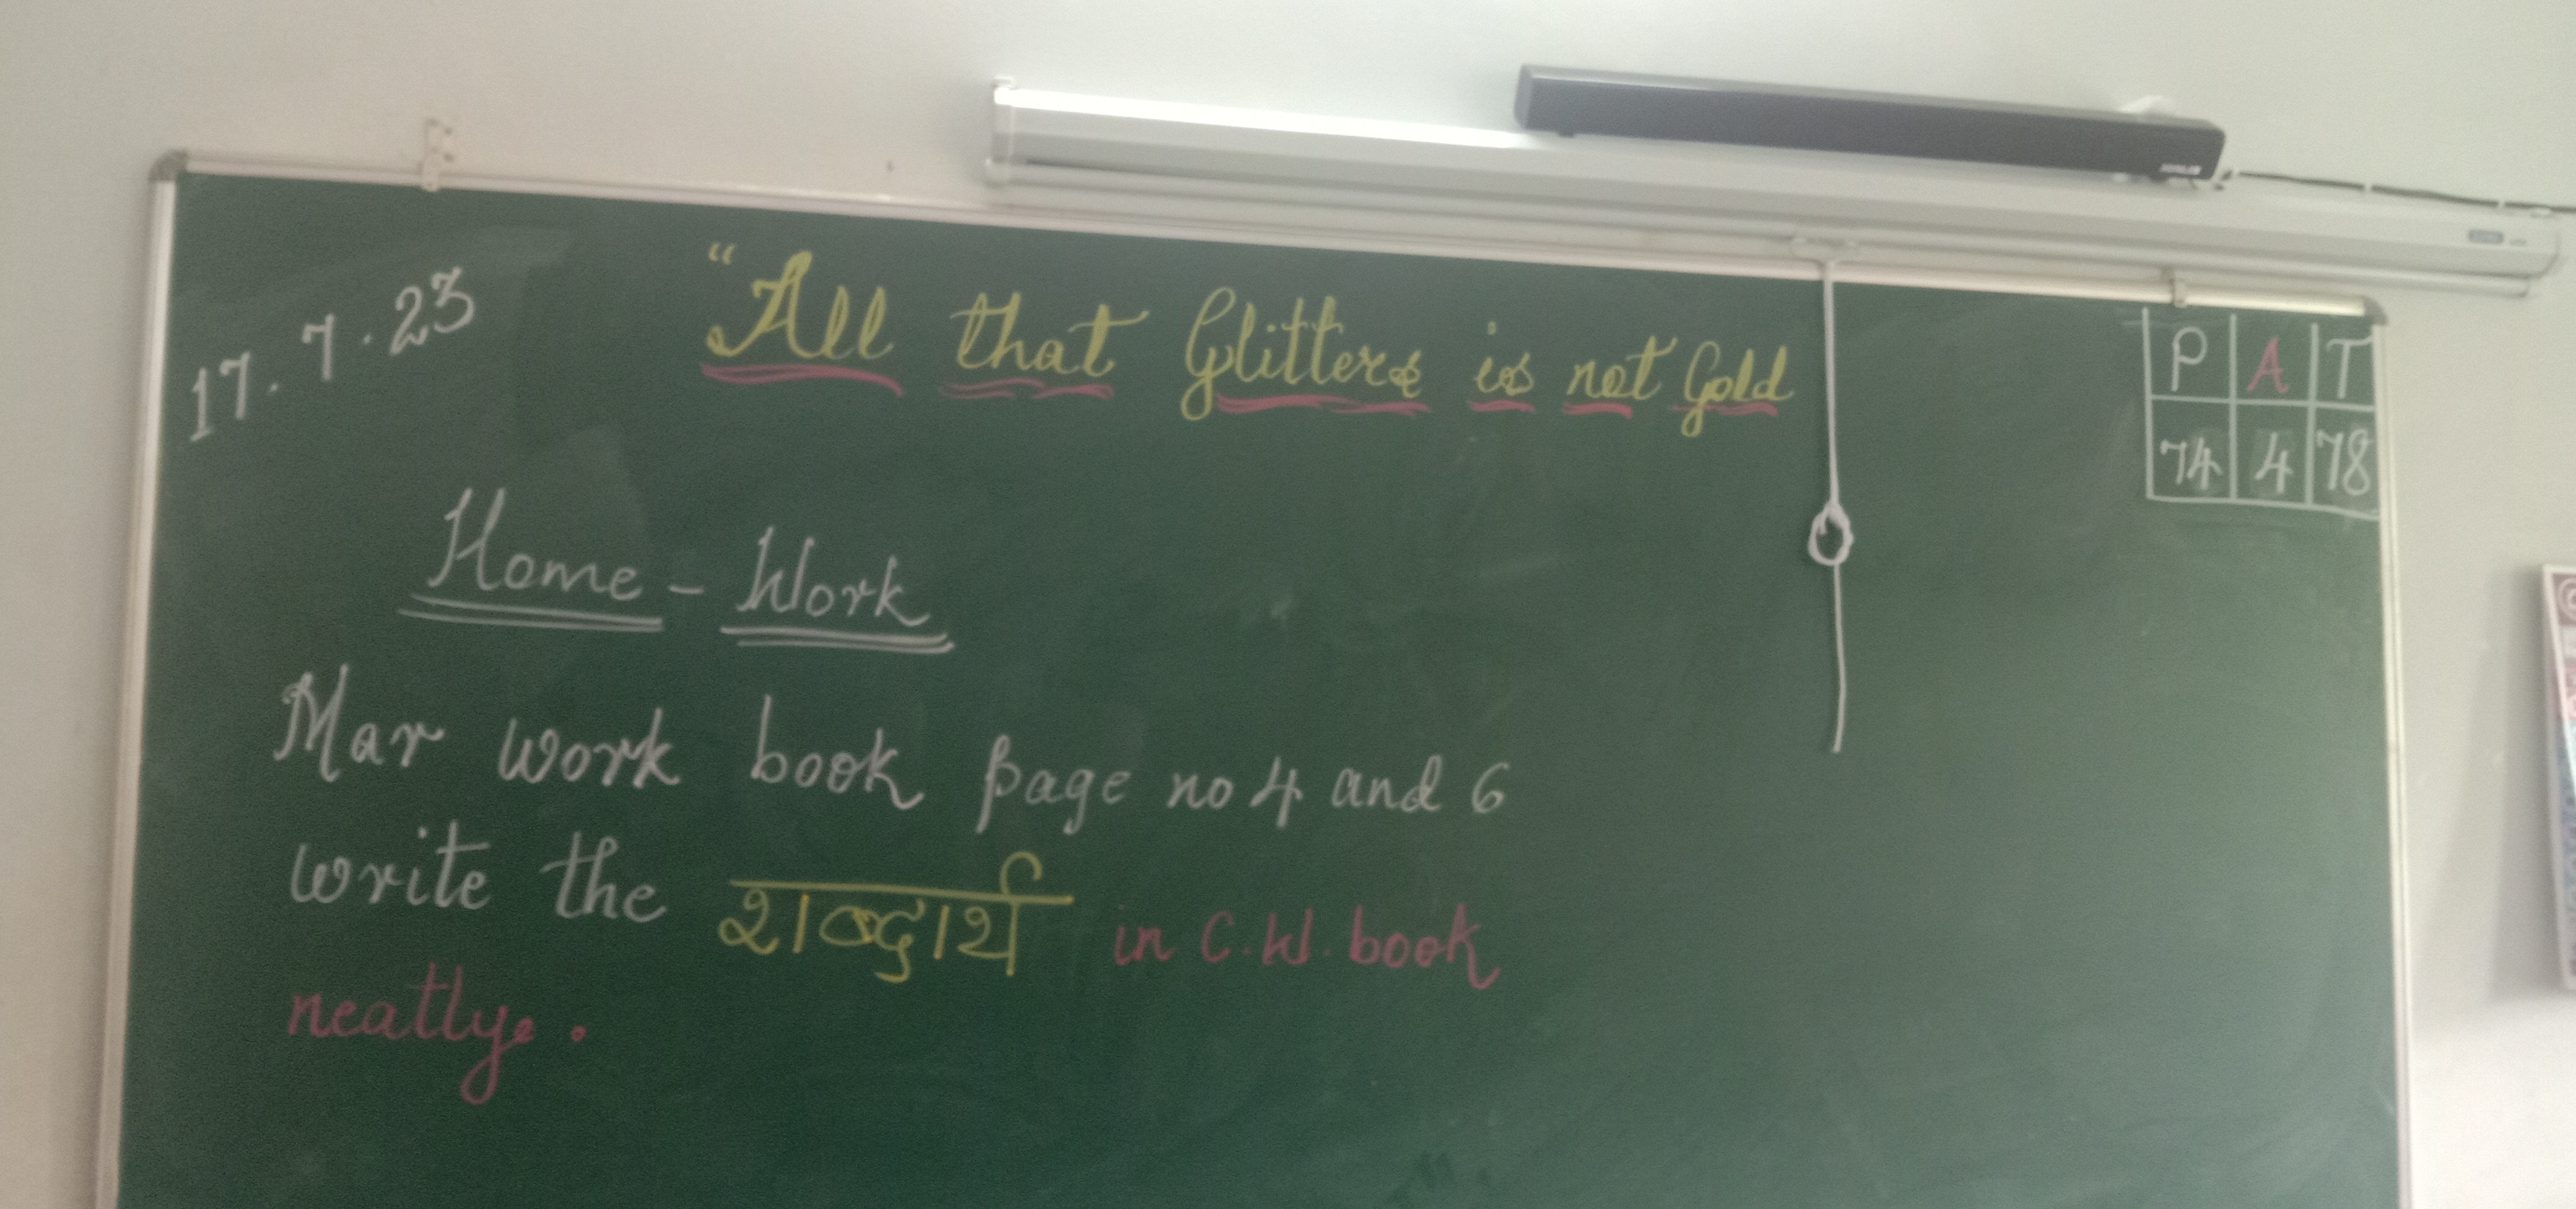 17.7.23
“All that Glitters is not Gold
P A T
74 4 78
Home - Work
Mar work book page no 4 and 6
write the शब्दार्थ in C.W. book
neatly.